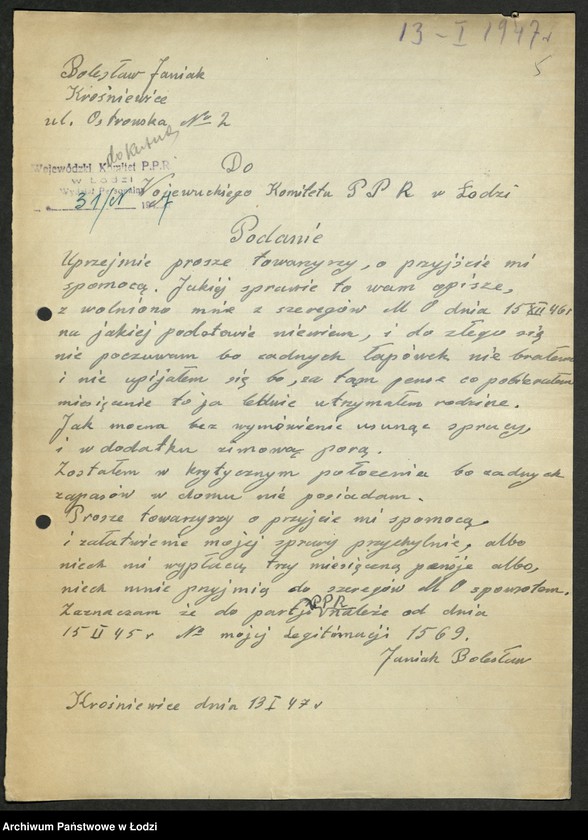 13-I 1947r
5
Bolesław Janiak
Krośniewice
ul. Ostrowska No 2
Wojewódzki Komitet P.P.R.
w Łodzi
31/VI 1947
Do
Wojewuckiego Komitetu P P R w Łodzi
Podanie
Uprzejmie prosze towarzyszy, o przyjście mi
spomocą. Jakiej sprawie to wam opisze,
z wolniono mnie z szeregów M O dnia 15 XII 46r
na jakiej podstawie niewiem, i do złego się
nie poczuwam bo żadnych łapówek nie brałem
i nie upijałem się bo, za tam pensę co pobierałem
miesięcznie to ja ledwie utrzymałem rodzinę.
Jak mocna bez wymówienie usunąć spracy,
i w dodatku zimową porą.
Zostałem w krytycznym położenia bo żadnych
zapasów w domu nie posiadam.
Prosze towarzyszy o przyjście mi spomocą,
i załatwienie mojej sprawy przychylnie, albo
niech mi wypłacą trzy miesięczną penśje albo,
niech mnie przyjmią do szeregów M O spowrotem.
Zaznaczam że do partji PPR należe od dnia
15 II 45 r No mojej Legitimacji 1569.
Janiak Bolesław
Krośniewice dnia 13 I 47 r
Archiwum Państwowe w Łodzi